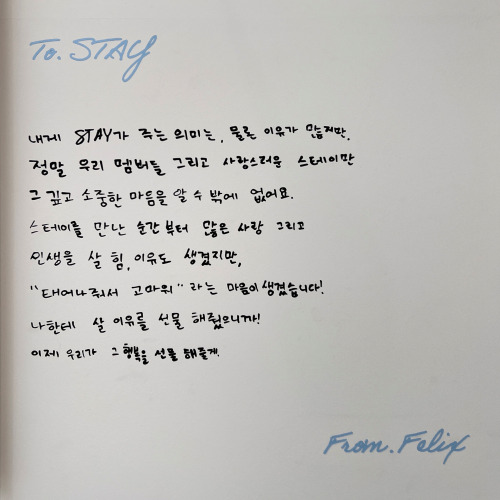 To. STAY
내게 STAY가 주는 의미는, 물론 이유가 많지만,
정말 우리 멤버들 그리고 사랑스러운 스테이만
그 깊고 소중한 마음을 알 수 밖에 없어요.
스테이를 만난 순간부터 많은 사랑 그리고
인생을 살 힘, 이유도 생겼지만,
"태어나줘서 고마워" 라는 마음이 생겼습니다!
나한테 살 이유를 선물 해줬으니까!
이제 우리가 그 행복을 선물 해줄게.
From. Felix